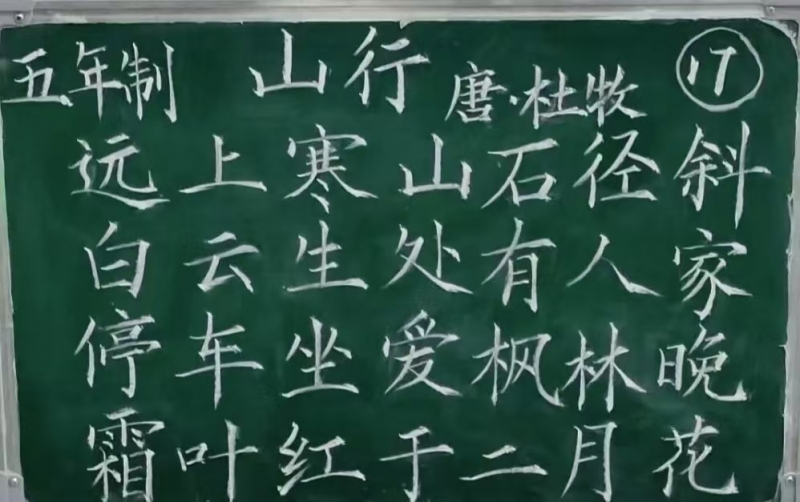 五年制 山行 唐·杜牧 17
远上寒山石径斜
白云生处有人家
停车坐爱枫林晚
霜叶红于二月花